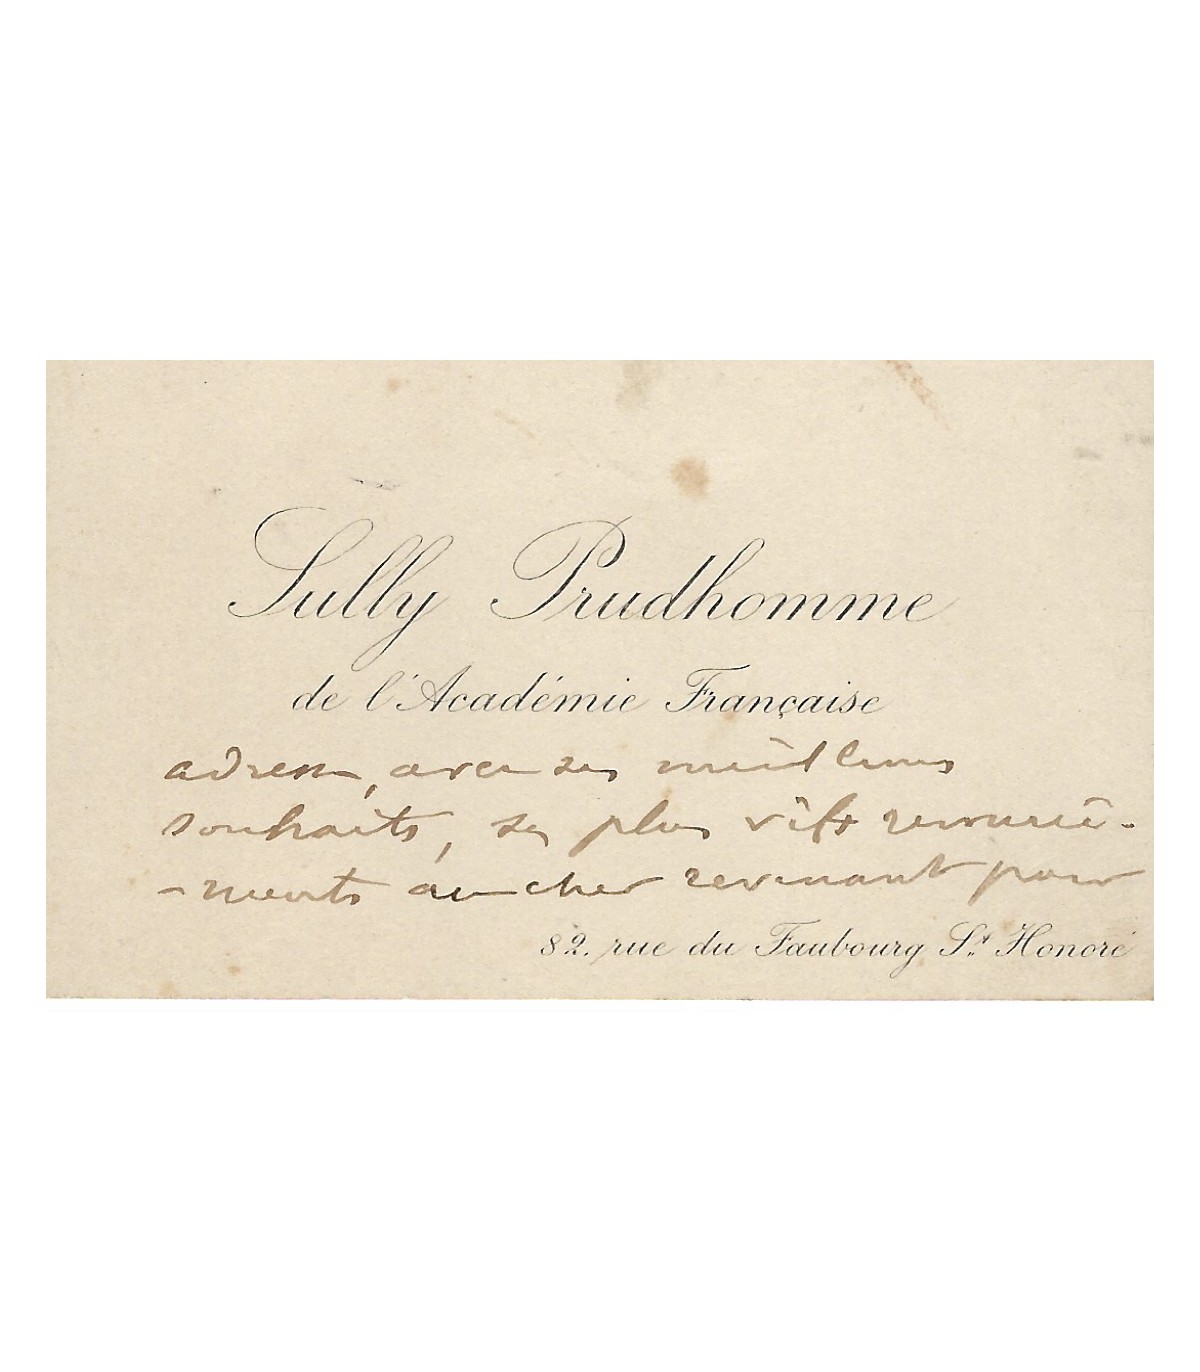 Sully Prudhomme
de l'Académie Française
adresse, avec ses meilleurs
souhaits, ses plus vifs remercie-
-ments au cher revenant pour
82. rue du Faubourg St. Honoré